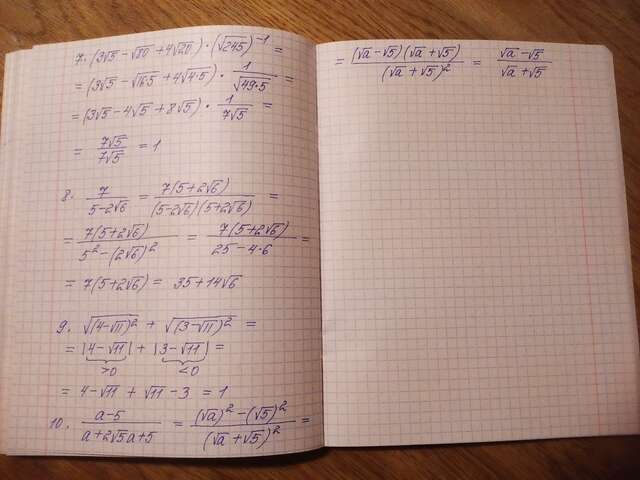 7. (3√5 - √80 + 4√20) · (√245)⁻¹ =
= (3√5 - √16·5 + 4√4·5) · 1/√49·5 =
= (3√5 - 4√5 + 8√5) · 1/7√5 =
= 7√5/7√5 = 1
8. 7/(5-2√6) = 7(5+2√6)/(5-2√6)(5+2√6) =
= 7(5+2√6)/(5² - (2√6)²) = 7(5+2√6)/(25 - 4·6) =
= 7(5+2√6) = 35+14√6
9. √(4-√11)² + √(3-√11)² =
= |4-√11| + |3-√11| =
>0 <0
= 4-√11 + √11 - 3 = 1
10. (a-5)/(a+2√5a+5) = ((√a)² - (√5)²)/(√a + √5)² =
= (√a - √5)(√a + √5)/(√a + √5)² = (√a - √5)/(√a + √5)